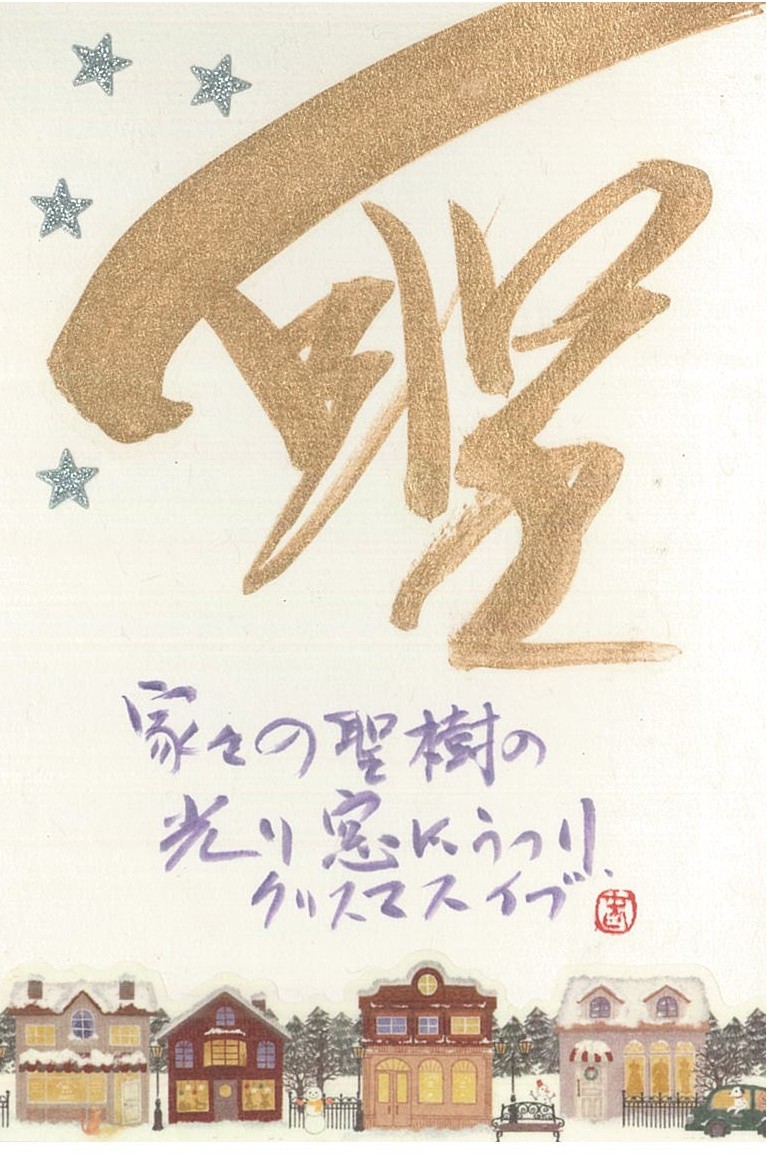 聖
家々の聖樹の
光り窓にうつり、
クリスマスイブ